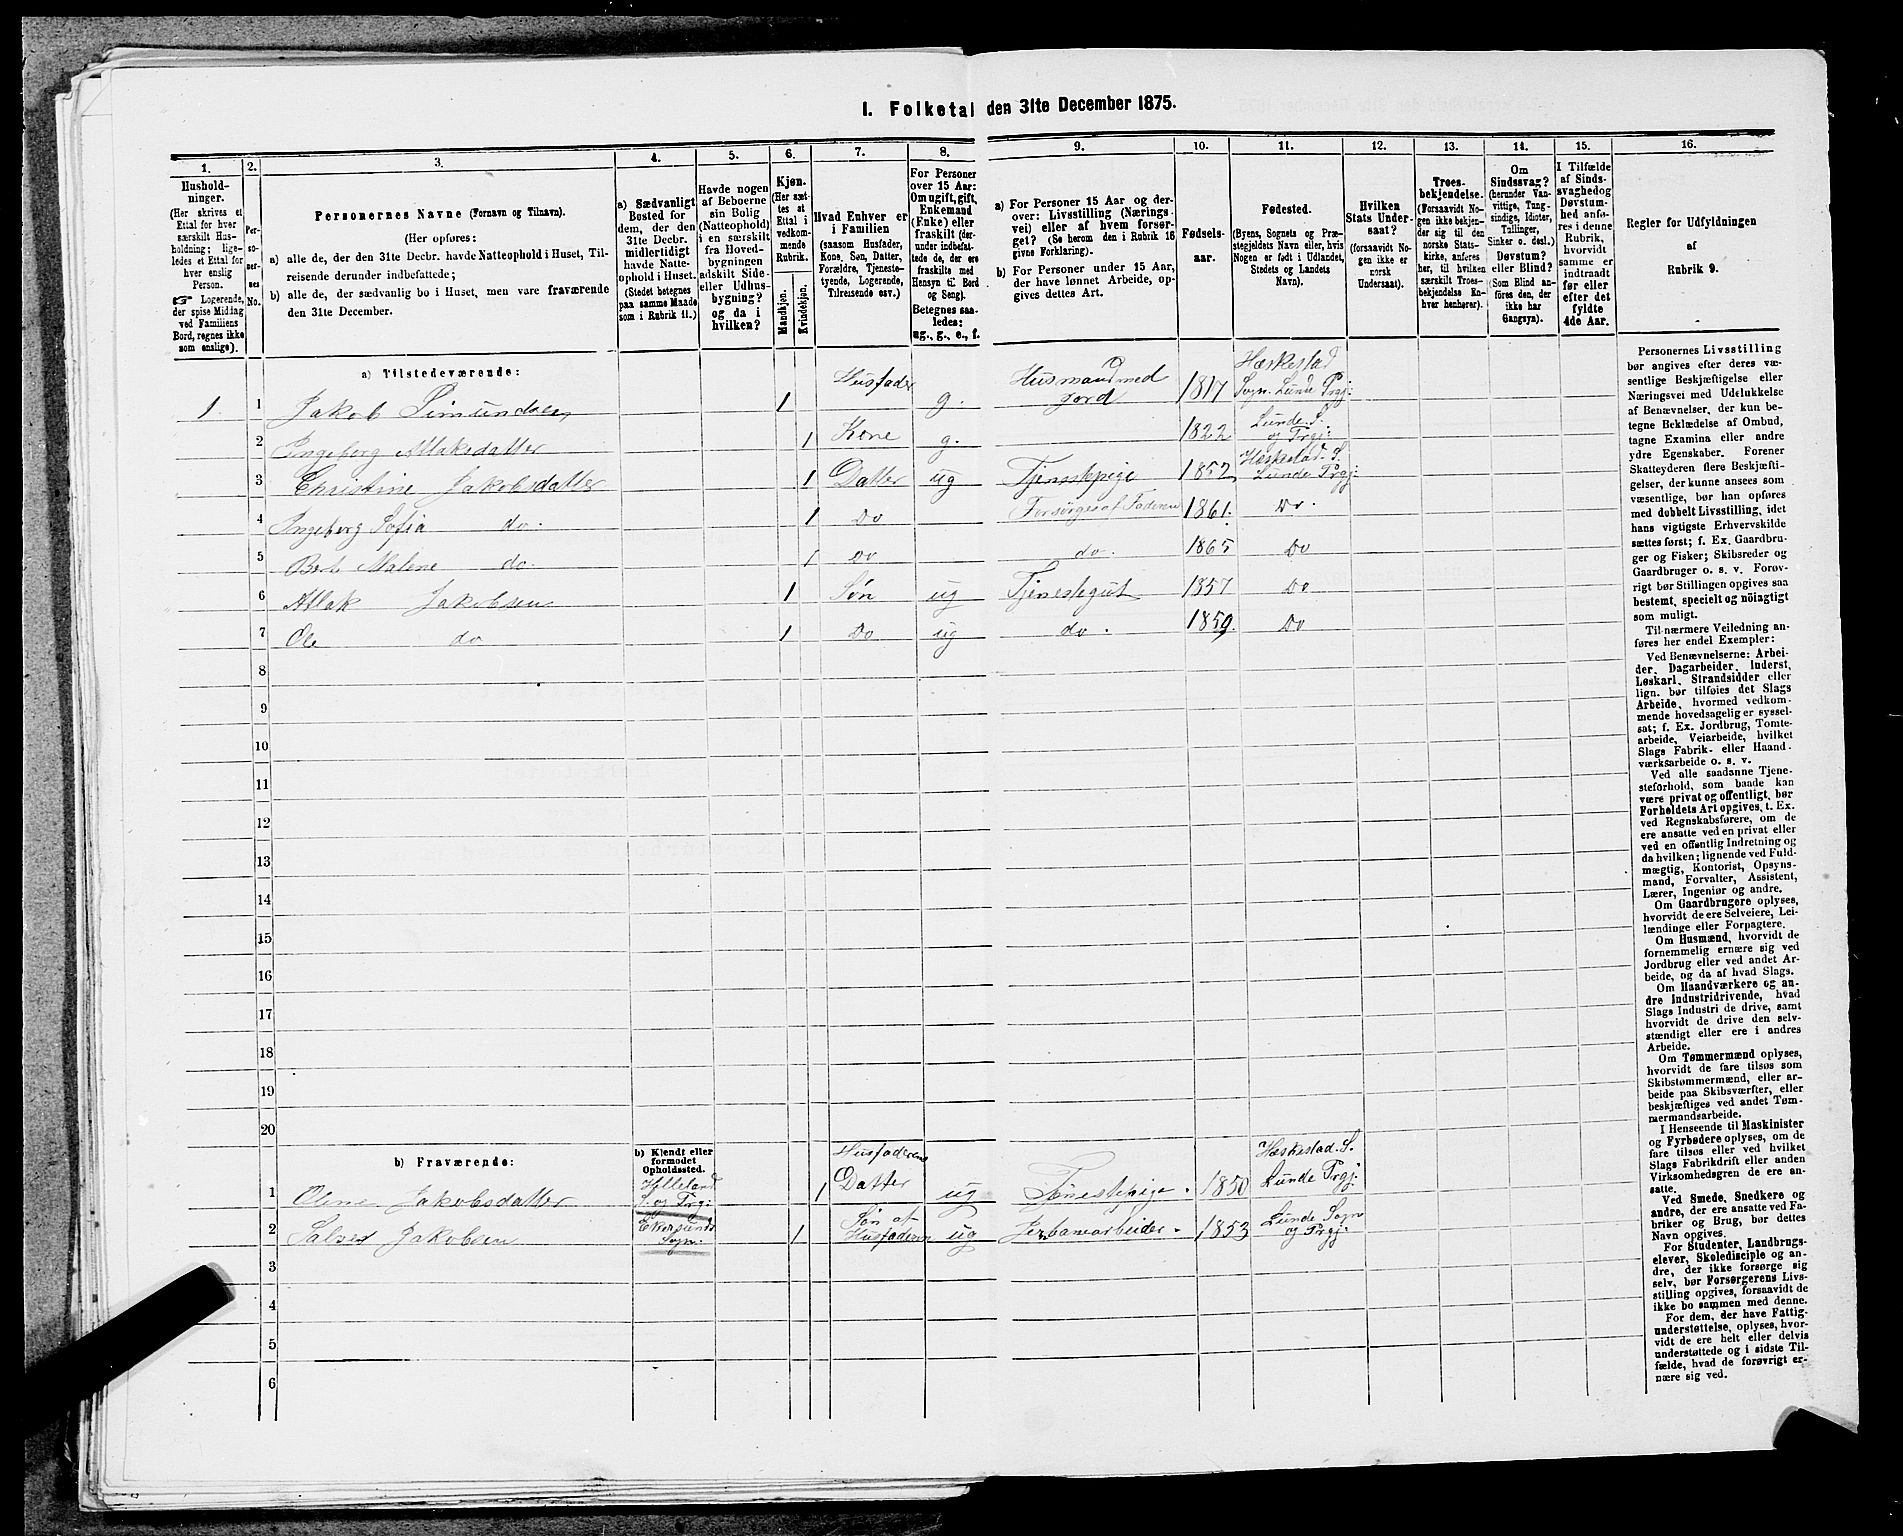 I. Folketal den 31te December 1875.
1. 2. 3. 4. 5. 6. 7. 8. 9. 10. 11. 12. 13. 14. 15. 16.
Hushold-
ninger.
(Her skrives et
Ettal for hver
særskilt Hus-
holdning; lige-
ledes et Ettal for
hver enslig
Person.
☞ Logerende,
der spise Middag
ved Familiens
Bord, regnes ikke
som enslige).
Per-
so-
ner-
nes
No.
Personernes Navne (Fornavn og Tilnavn).
(Her opføres:
a) alle de, der den 31te Decbr. havde Natteophold i Huset, Til-
reisende derunder indbefattede;
b) alle de, der sædvanlig bo i Huset, men vare fraværende
den 31te December.
a) Sædvanligt
Bosted for
dem, der den
31te Decbr.
midlertidigt
havde Natte-
ophold i Huset.
(Stedet betegnes
paa samme Maade
som i Rubrik 11.)
Havde nogen
af Beboerne
sin Bolig
(Natteophold)
i en særskilt
fra Hoved-
bygningen
adskilt Side-
eller Udhus-
bygning?
og da i
hvilken?
Kjøn.
(Her sæt-
tes et
Ettal i
vedkom-
mende
Rubrik.
Mandkjøn.
Kvindekjøn.
Hvad Enhver er
i Familien
(saasom Husfader,
Kone, Søn, Datter,
Forældre, Tjeneste-
tyende, Logerende,
Tilreisende osv.)
For Personer
over 15 Aar:
Om ugift, gift,
Enkemand
(Enke) eller
fraskilt (der-
under indbefat-
tede de, der ere
fraskilte med
Hensyn til Bord
og Seng).
Betegnes saa-
ledes:
ug., g., e., f.
a) For Personer 15 Aar og der-
over: Livsstilling (Nærings-
vei) eller af hvem forsør-
get? (Se herom den i Rubrik 16
givne Forklaring).
b) For Personer under 15 Aar,
der have lønnet Arbeide, op-
gives dettes Art.
Fødsels-
aar.
Fødested.
(Byens, Sognets og Præ-
stegjeldets Navn eller, hvis
Nogen er født i Udlandet,
Stedets og Landets
Navn).
Hvilken
Stats Under-
saat?
(forsaavidt No-
gen ikke er
norsk
Undersaat).
Troes-
bekjendelse.
(Forsaavidt No-
gen ikke bekjen-
der sig til den
norske Stats-
kirke, anføres
her, til hvilken
særskilt Troes-
bekjendelse En-
hver henhører).
Om
Sindssvag?
(herunder Van-
vittige, Tung-
sindige, Idioter,
Tullinger,
Sinker o. desl.)
Døvstum?
eller Blind?
(Som Blind an-
føres den, der
ikke har
Gangsyn).
I Tilfælde
af Sinds-
svaghed og
Døvstum-
hed anfø-
res i denne
Rubrik,
hvorvidt
samme er
indtraadt
før eller
efter det
fyldte
4de Aar.
Regler for Udfyldningen
af
Rubrik 9.
a) Tilstedeværende:
1 1 Jakob Simundsen 1 Husfader g. Husmand med Jord 1817 Hæskestad Sogn. Lunde Prgj:
2 Ingeborg Atlaksdatter 1 Kone g. 1822 Lunde S. og Prgj:
3 Christine Jakobsdatter 1 Datter ug Tjenstepige 1852 Hæskestad S. Lunde Prgj:
4 Ingeborg Sofia do. 1 Do Forsørges af Faderen 1861. Do.
5 Bert Malene do. 1 Do do. 1865 Do
6 Atlak Jakobsen 1 Søn ug Tjenestegut 1857 Do
7 Ole do 1 Do ug do. 1859. Do
8
9
10
11
12
13
14
15
16
17
18
19
20
b) Fraværende:
b) Kjendt eller
formodet
Opholdssted.
1 Oline Jakobsdatter Helleland S. og Prgj: 1 Husfaderens Datter ug Tjenestepige. 1850 Hæskestad. S. Lunde Prgj:
2 Salves Jakobsen Ekersunds Sogn. 1 Søn af Husfaderen ug Jernbanearbeider. 1853 Lunde Sogn og Prgj:
3
4
5
6
Personernes Livsstilling
bør angives efter deres væ-
sentlige Beskjæftigelse eller
Næringsvei med Udelukkelse
af Benævnelser, der kun be-
tegne Beklædelse af Ombud,
tagne Examina eller andre
ydre Egenskaber. Forener
Skatteyderen flere Beskjæfti-
gelser, der kunne ansees som
væsentlige, bør han opføres
med dobbelt Livsstilling, idet
hans vigtigste Erhvervskilde
sættes først; f. Ex. Gaardbru-
ger og Fisker; Skibsreder og
Gaardbruger o. s. v. Forøv-
rigt bør Stillingen opgives saa
bestemt, specielt og nöiagtigt
som muligt.
Til nærmere Veiledning an-
føres her endel Exempler:
Ved Benævnelserne: Arbei-
der, Dagarbeider, Inderst,
Løskarl, Strandsidder eller
lign. bør tilføies det Slags
Arbeide, hvormed vedkom-
mende hovedsagelig er syssel-
sat; f. Ex. Jordbrug, Tomte-
arbeide, Veiarbeide, hvilket
Slags Fabrik- eller Haand-
værksarbeide o. s. v.
Ved alle saadanne Tjene-
steforhold, som baade kan
være privat og offentligt, bør
Forholdets Art opgives, t. Ex.
ved Regnskabsførere, om de
ere ansatte ved en privat eller
ved en offentlig Indretning og
da hvilken; lignende ved Fuld-
mægtig, Kontorist, Opsyns-
mand, Forvalter, Assistent,
Lærer, Ingeniør og andre.
Om Gaardbrugere oplyses,
hvorvidt de ere Selveiere, Lei-
lændinge eller Forpagtere.
Om Husmænd, hvorvidt de
fornemmelig ernære sig ved
Jordbrug eller ved andet Ar-
beide, og da af hvad Slags.
Om Haandværkere og an-
dre Industridrivende, hvad
Slags Industri de drive, samt
hvorvidt de drive den selv-
stændigt eller ere i andres
Arbeide.
Om Tømmermænd oplyses,
hvorvidt de fare tilsøs som
Skibstømmermænd, eller ar-
beide paa Skibsværfter, eller
beskjæftiges ved andet Tøm-
mermandsarbeide.
I Henseende til Maskinister
og Fyrbødere oplyses, om de
fare tilsøs eller ved hvilket
Slags Fabrikdrift eller anden
Virksomhedsgren de ere an-
satte.
Ved Smede, Snedkere og
andre, der ere ansatte ved Fa-
briker og Brug, bør dettes
Navn opgives.
For Studenter, Landbrugs-
elever, Skoledisciple og an-
dre, der ikke forsørge sig
selv, bør Forsørgerens Livs-
stilling opgives, forsaavidt de
ikke bo sammen med denne.
For dem, der have Fattig-
understøttelse, oplyses, hvor-
vidt de ere helt eller delvis
understøttede og i sidste Til-
fælde, hvad de forøvrigt er-
nære sig ved.